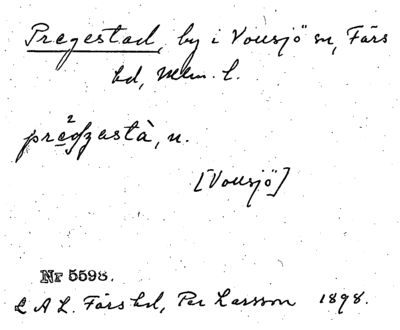 Pregestad, by i Vousjö sn, Färs
hd, Mlm. l.
præ²gastà, n.
[Vousjö]
Nr 5598.
L A L. Färs hd, Per Larsson 1898.